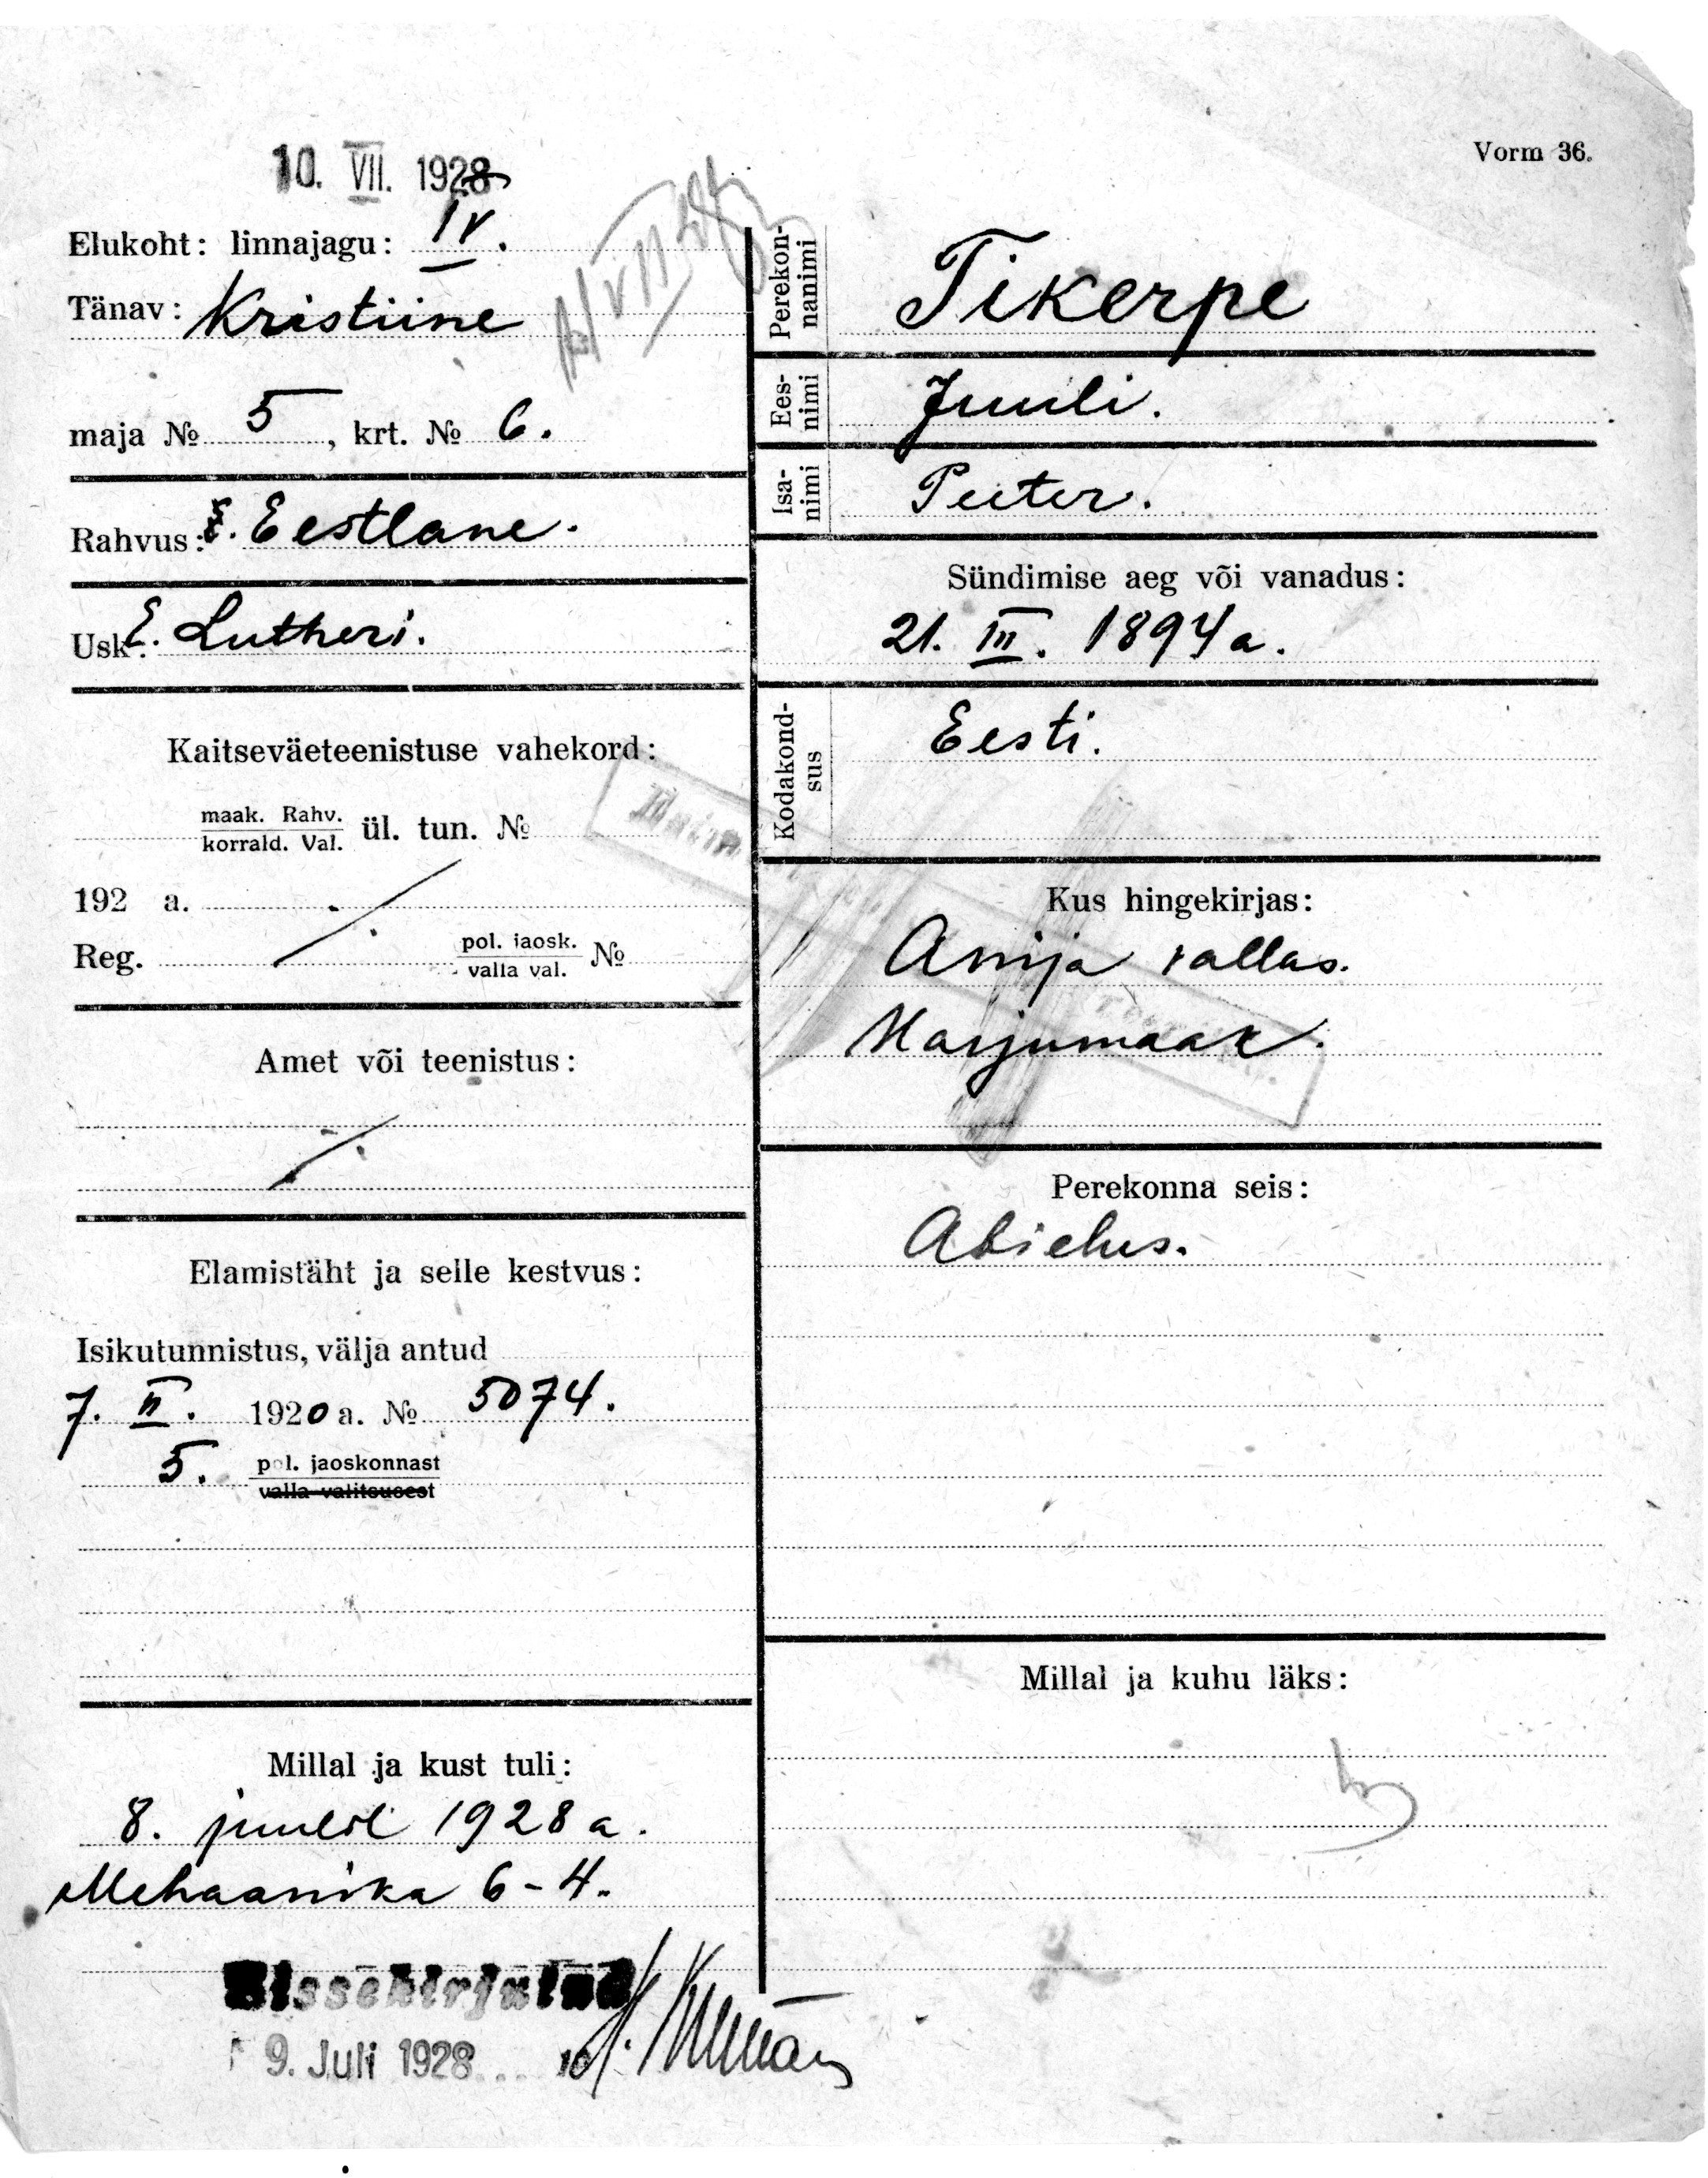 Vorm 36.
10. VII. 1928
Elukoht: linnajagu: IV.
Tänav: Kristiine
maja № 5, krt. № 6.
Rahvus: Eestlane.
Usk: E. Lutheri.
Kaitseväeteenistuse vahekord:
maak. Rahv.
korrald. Val. ül. tun. №
192 a.
Reg. pol. jaosk.
valla val. №
Amet või teenistus:
Elamistäht ja selle kestvus:
Isikutunnistus, välja antud
7. II. 1920 a. № 5074.
5. pol. jaoskonnast
valla valitsusest
Millal ja kust tuli:
8. juulil 1928 a.
Mehaanika 6-4.
Sissekirjutud
9. Juli 1928
Perekon-
nanimi Tikerpe
Ees-
nimi Juuli.
Isa-
nimi Peeter.
Sündimise aeg või vanadus:
21. III. 1894 a.
Kodakond-
sus Eesti.
Kus hingekirjas:
Anija vallas.
Harjumaal.
Perekonna seis:
Abielus.
Millal ja kuhu läks: